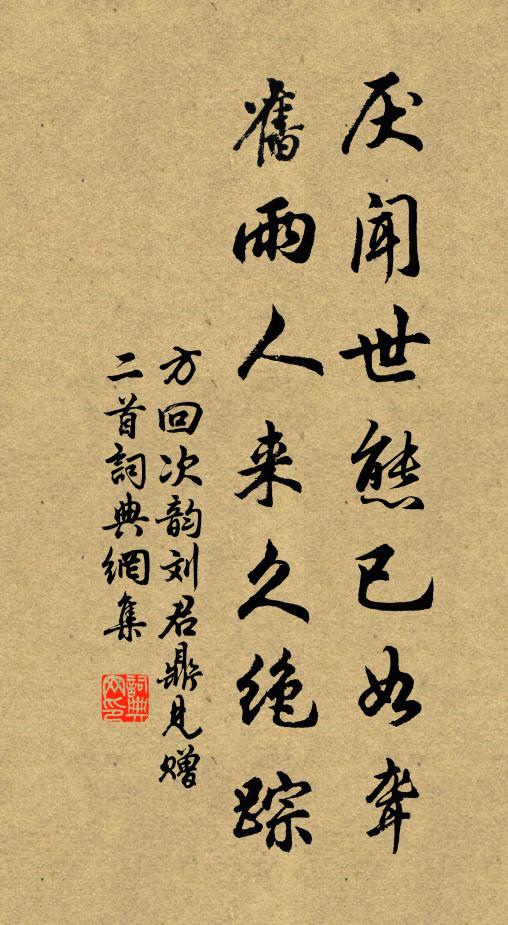 厌闻世態已如聋
舊雨人来久绝踪
方回次韵刘君鼎见赠
二首詞典網集
詞典网印